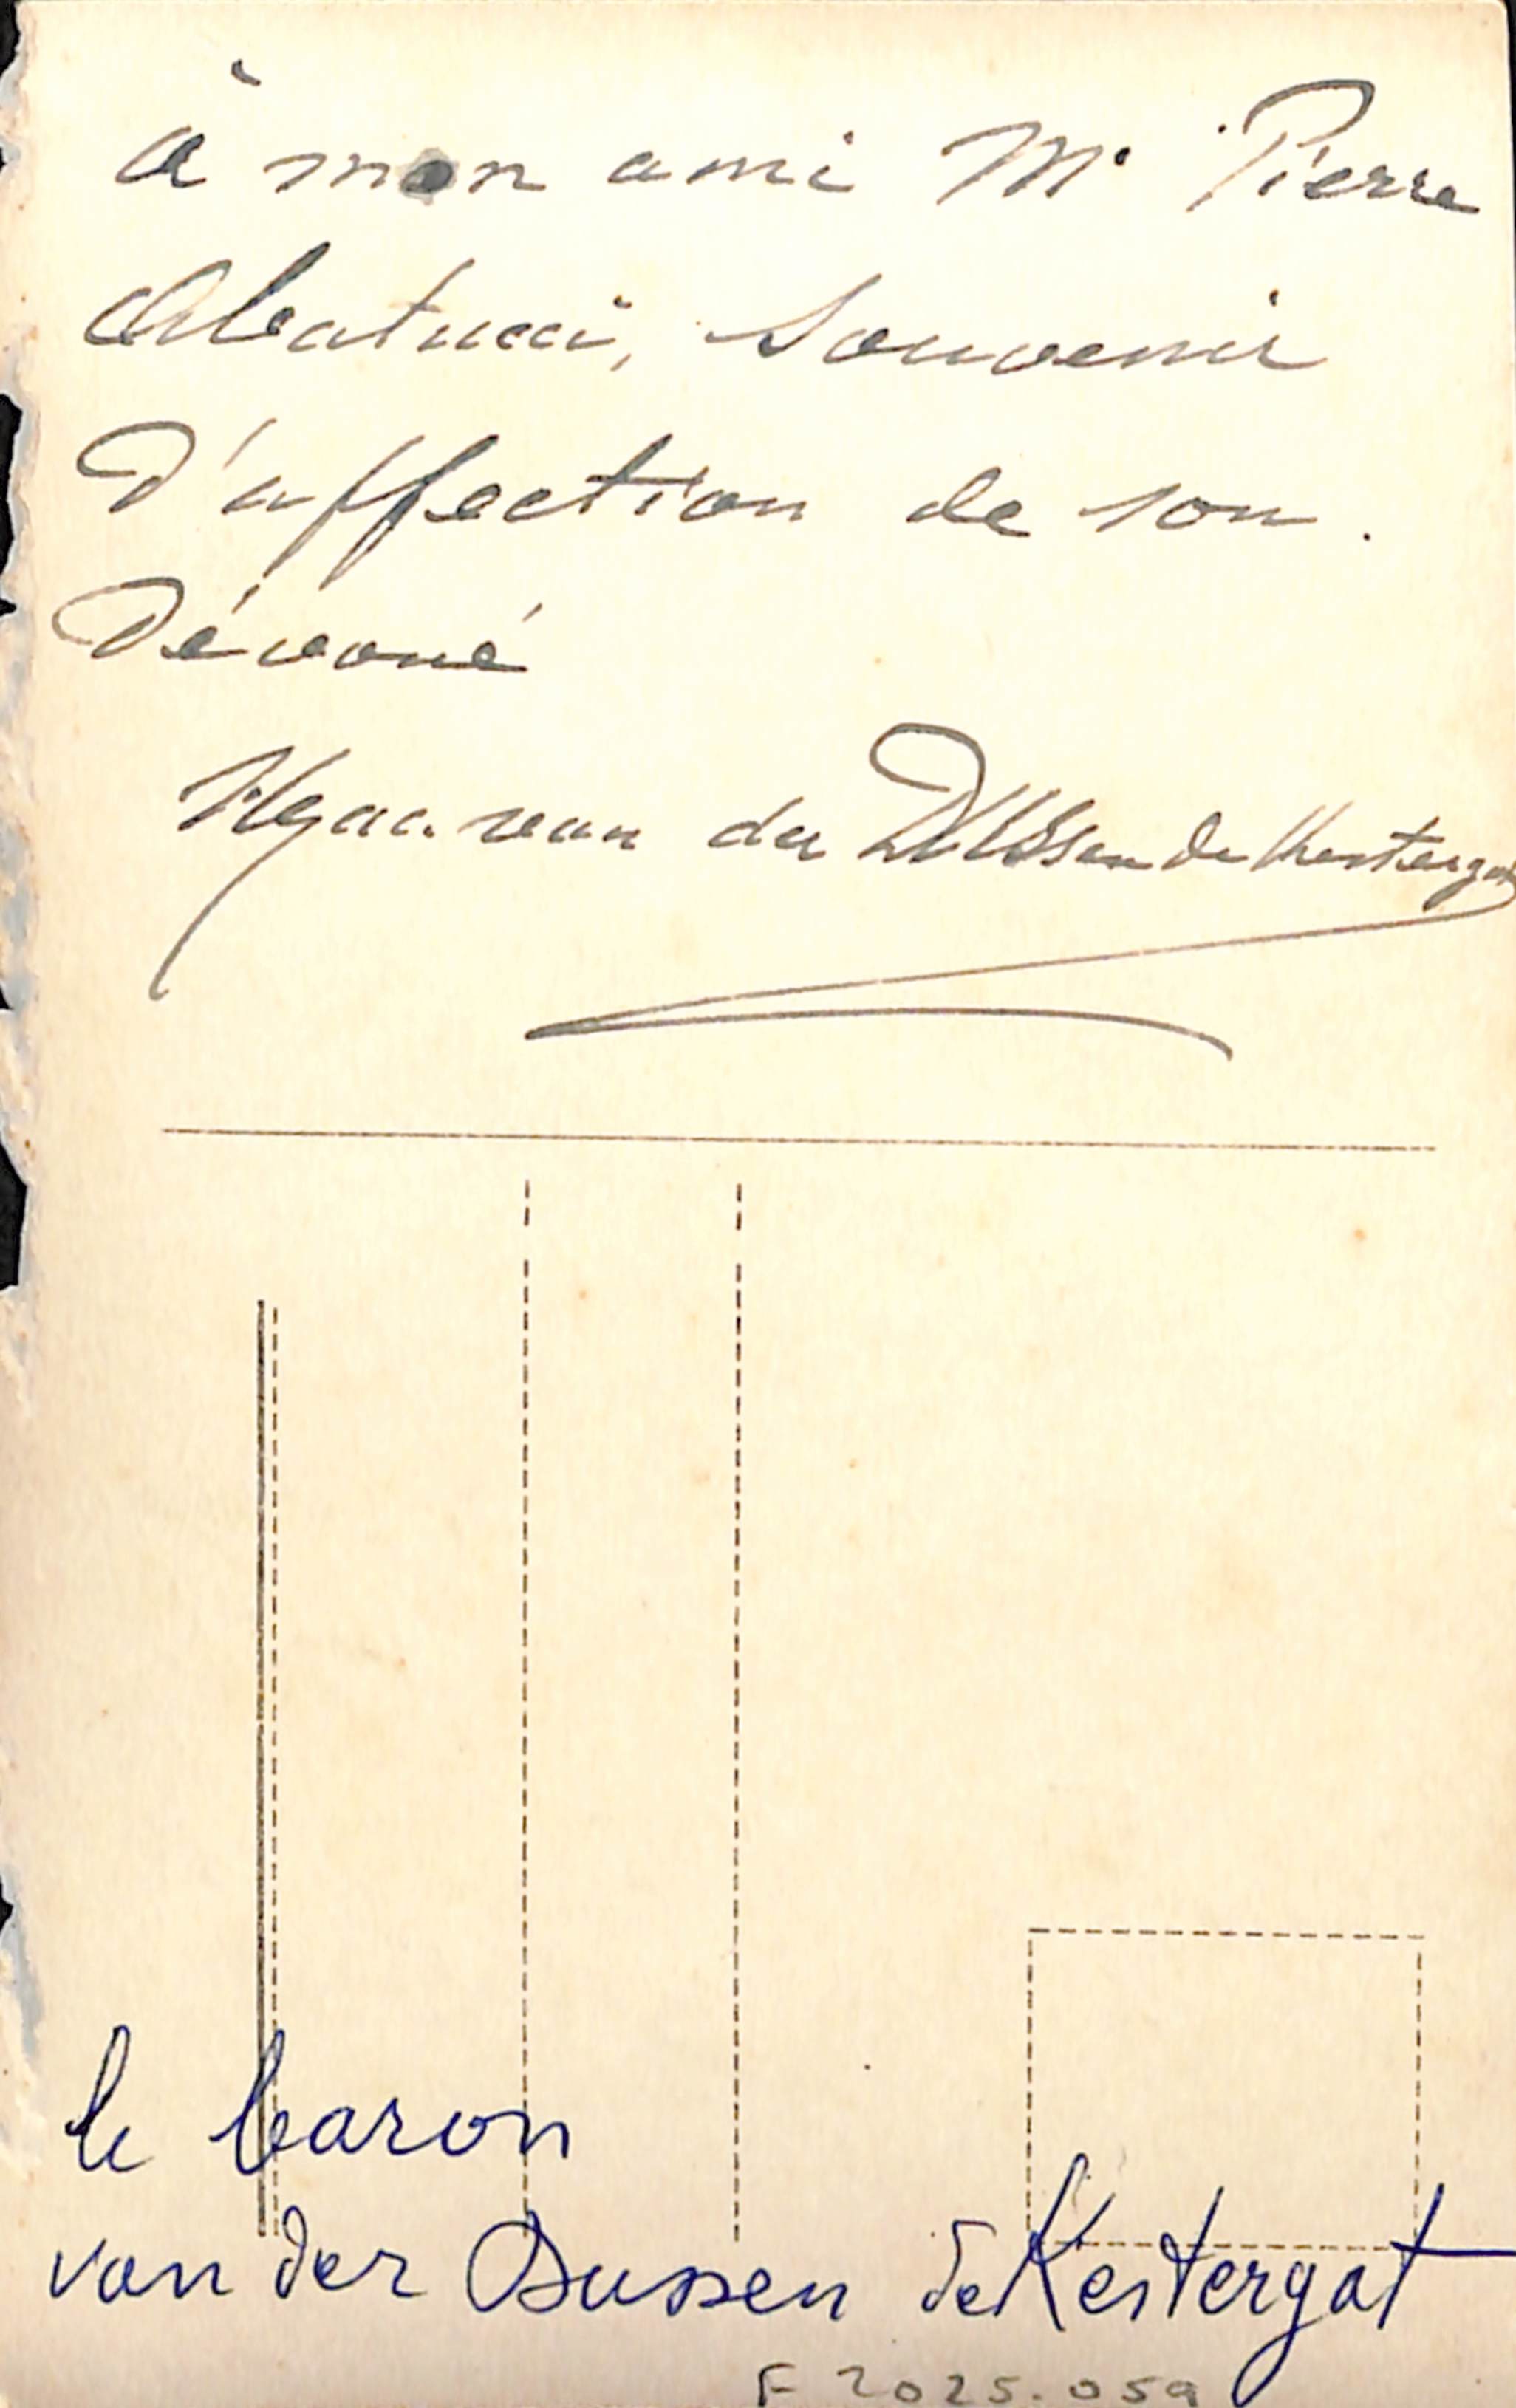 à mon ami Mr Pierre
Abatucci, Souvenir
D'affection de son
Dévoué
van der Dussen de Kestergat
le baron
van der Dussen de Kestergat
F 2025.059